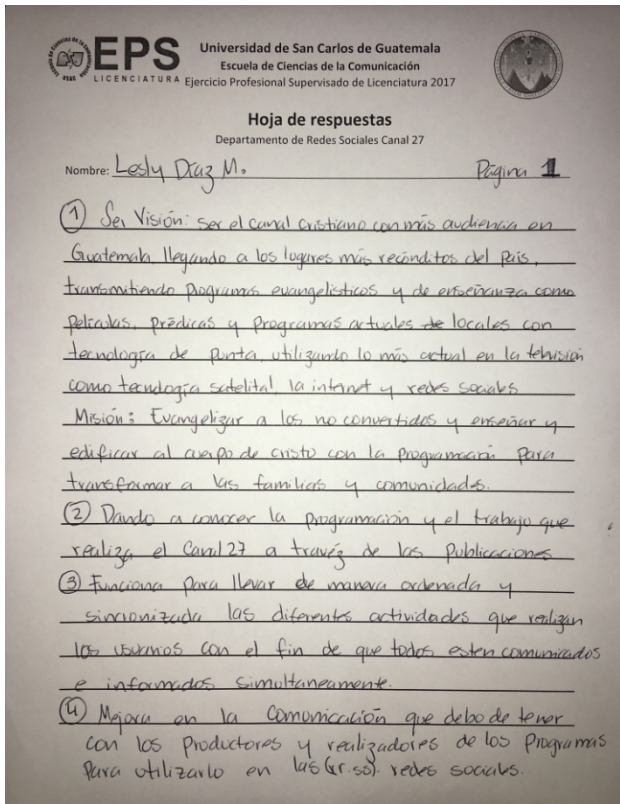 EPS
LICENCIATURA
Universidad de San Carlos de Guatemala
Escuela de Ciencias de la Comunicación
Ejercicio Profesional Supervisado de Licenciatura 2017
Hoja de respuestas
Departamento de Redes Sociales Canal 27
Nombre: Lesly Díaz M. Página 1
① Sei Visión: ser el canal cristiano con más audiencia en
Guatemala, llegando a los lugares más recónditos del País,
transmitiendo programas evangelísticos y de enseñanza como
películas, prédicas y Programas actuales de locales con
tecnología de punta, utilizando lo más actual en la televisión
como tecnología satelital, la internet y redes sociales
Misión: Evangelizar a los no convertidos y enseñar y
edificar al cuerpo de cristo con la programación para
transformar a las familias y comunidades.
② Dando a conocer la programación y el trabajo que
realiza el Canal 27 a travéz de las Publicaciones
③ Funciona para llevar de manera ordenada y
sincronizada las diferentes actividades que realizan
los usuarios con el fin de que todos esten comunicados
e informados simultaneamente.
④ Mejora en la Comunicación que debo de tener
con los Productores y realizadores de los Programas
Para utilizarlo en las (rr.ss). redes sociales.